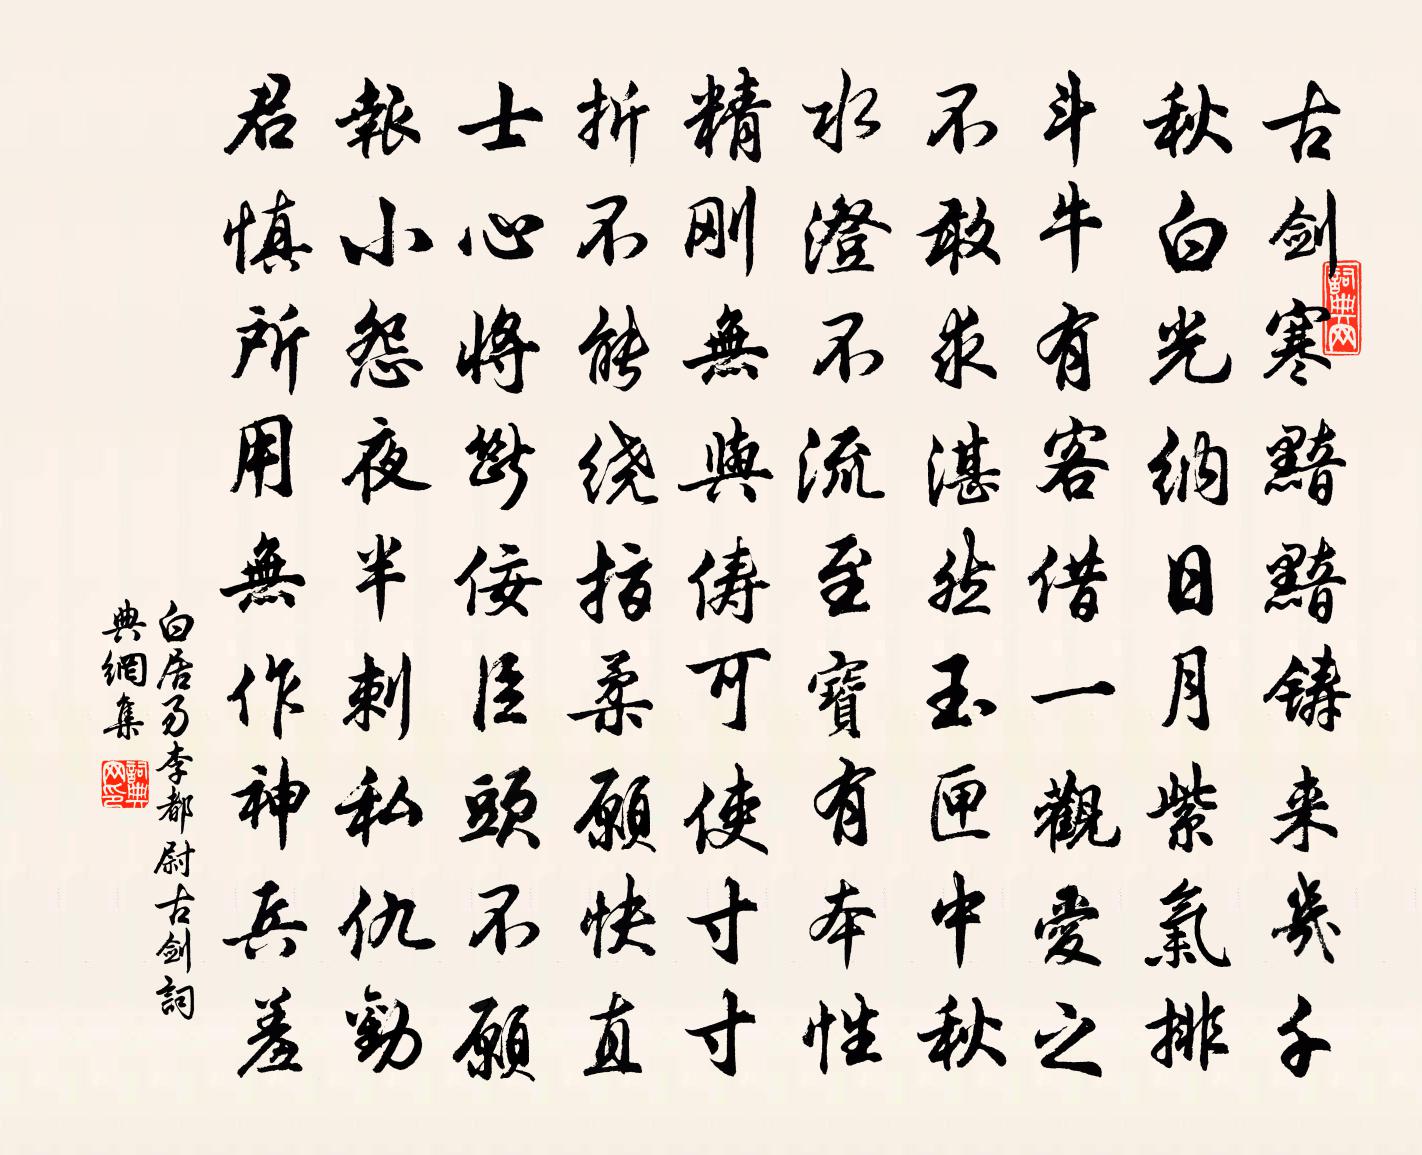 古剑寒黯黯铸来幾千
秋白光纳日月紫氣排
斗牛有客借一觀愛之
不敢求湛然玉匣中秋
水澄不流至寶有本性
精刚無與俦可使寸寸
折不能绕指柔願快直
士心将斷佞臣頭不願
報小怨夜半刺私仇勸
君慎所用無作神兵羞
白居易李都尉古剑詞
典網集
詞典网
詞典网印